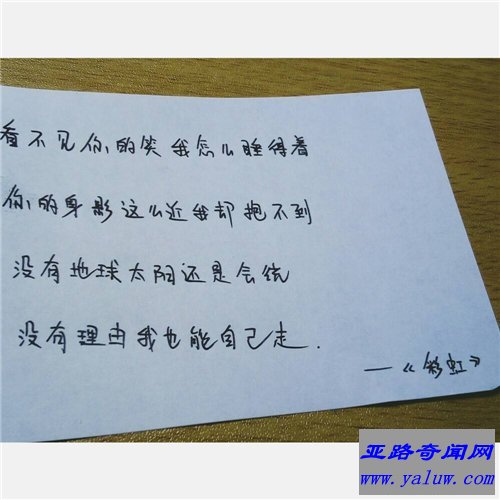 看不见你的笑 我怎么睡得着
你的身影这么近我却抱不到
没有地球太阳还是会绕
没有理由我也能自己走.
—《彩虹》
亚路奇闻网
www.yaluw.com